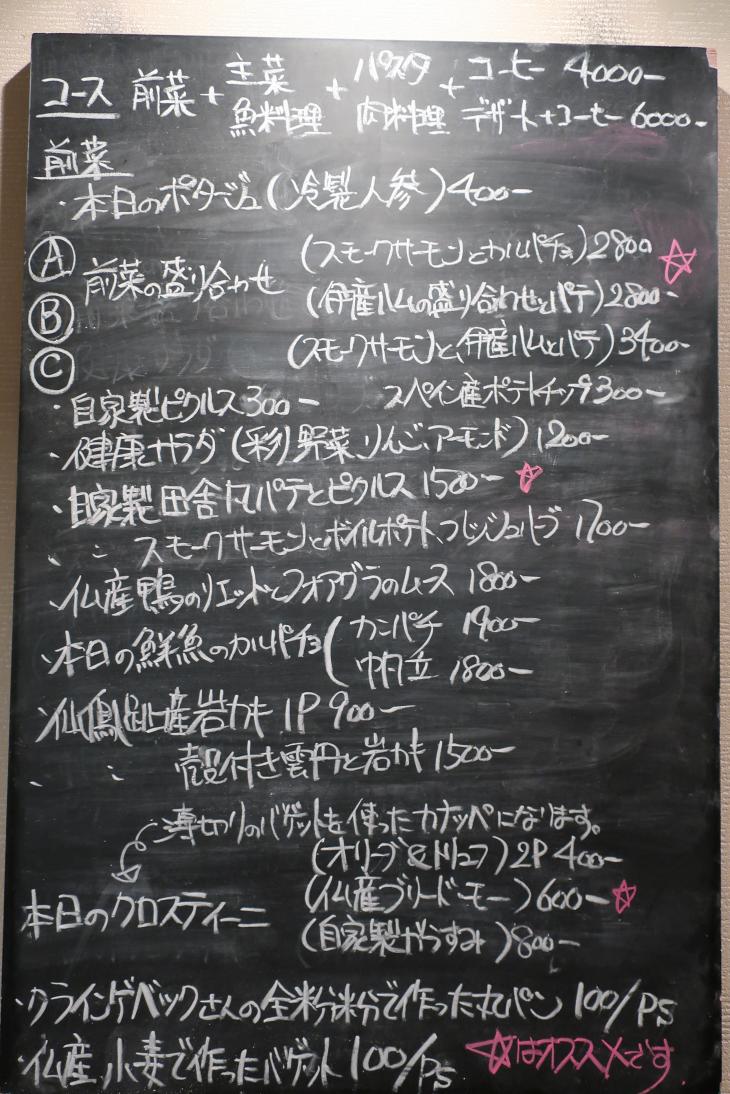 コース 前菜 + 主菜 魚料理 + パスタ 肉料理 + コーヒー 4000ー
デザート+コーヒー 6000ー
前菜
・本日のポタージュ(冷製人参)400ー
Ⓐ 前菜の盛り合わせ (スモークサーモンとカルパチョ)2800 ☆
Ⓑ (伊産ハムの盛り合わせとパテ)2800ー
Ⓒ (スモークサーモンと、伊産ハムとパテ)3400ー
・自家製ピクルス300ー スペイン産ポテトチップ300ー
・健康サラダ(彩り野菜、りんご、アーモンド)1200ー
・自家製田舎風パテとピクルス 1500ー ☆
・〃 スモークサーモンとボイルポテト、フレッシュハーブ 1700ー
・仏産鴨のリエットとフォアグラのムース 1800ー
・本日の鮮魚のカルパチョ(カンパチ 1900ー
帆立 1800ー
・仙鳳趾産岩カキ 1P 900ー
・〃 殻付き雲丹と岩カキ 1500ー
薄切りのバゲットを使ったカナッペになります。
本日のクロスティーニ (オリーブ&トリュフ)2P 400ー
(仏産ブリードモー)600ー ☆
(自家製からすみ)800ー
・クラインゲベックさんの全粒粉で作った丸パン 100/Ps
・仏産小麦で作ったバゲット 100/Ps ☆はオススメです